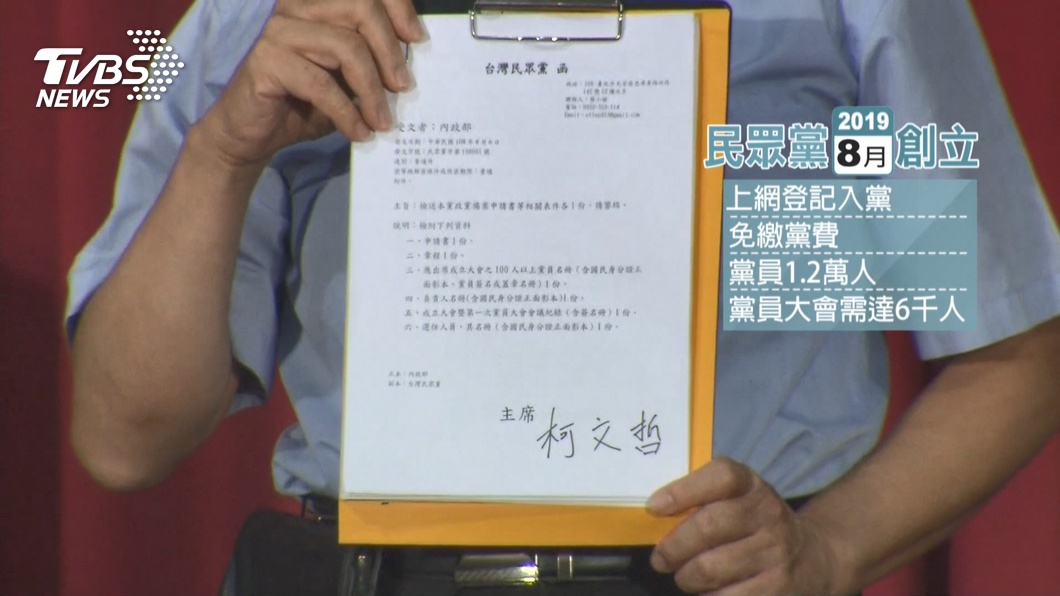 TVBS
NEWS
民眾黨 2019 8月 創立
上網登記入黨
免繳黨費
黨員1.2萬人
黨員大會需達6千人
台灣民眾黨 函
受文者：內政部
速別：普通件
附件：
主旨：檢送本黨政黨備案申請書等相關表件各1份，請鑒核。
說明：檢附下列資料
一、申請書1份。
二、章程1份。
三、應出席成立大會之100人以上黨員名冊（含國民身分證正
面影本、黨員簽名或蓋章名冊）1份。
四、負責人名冊(含國民身分證正面影本)1份。
五、成立大會暨第一次黨員大會會議紀錄（含簽名冊）1份。
六、選任人員，其名冊（含國民身分證正面影本）1份。
正本：內政部
副本：台灣民眾黨
主席 柯文哲